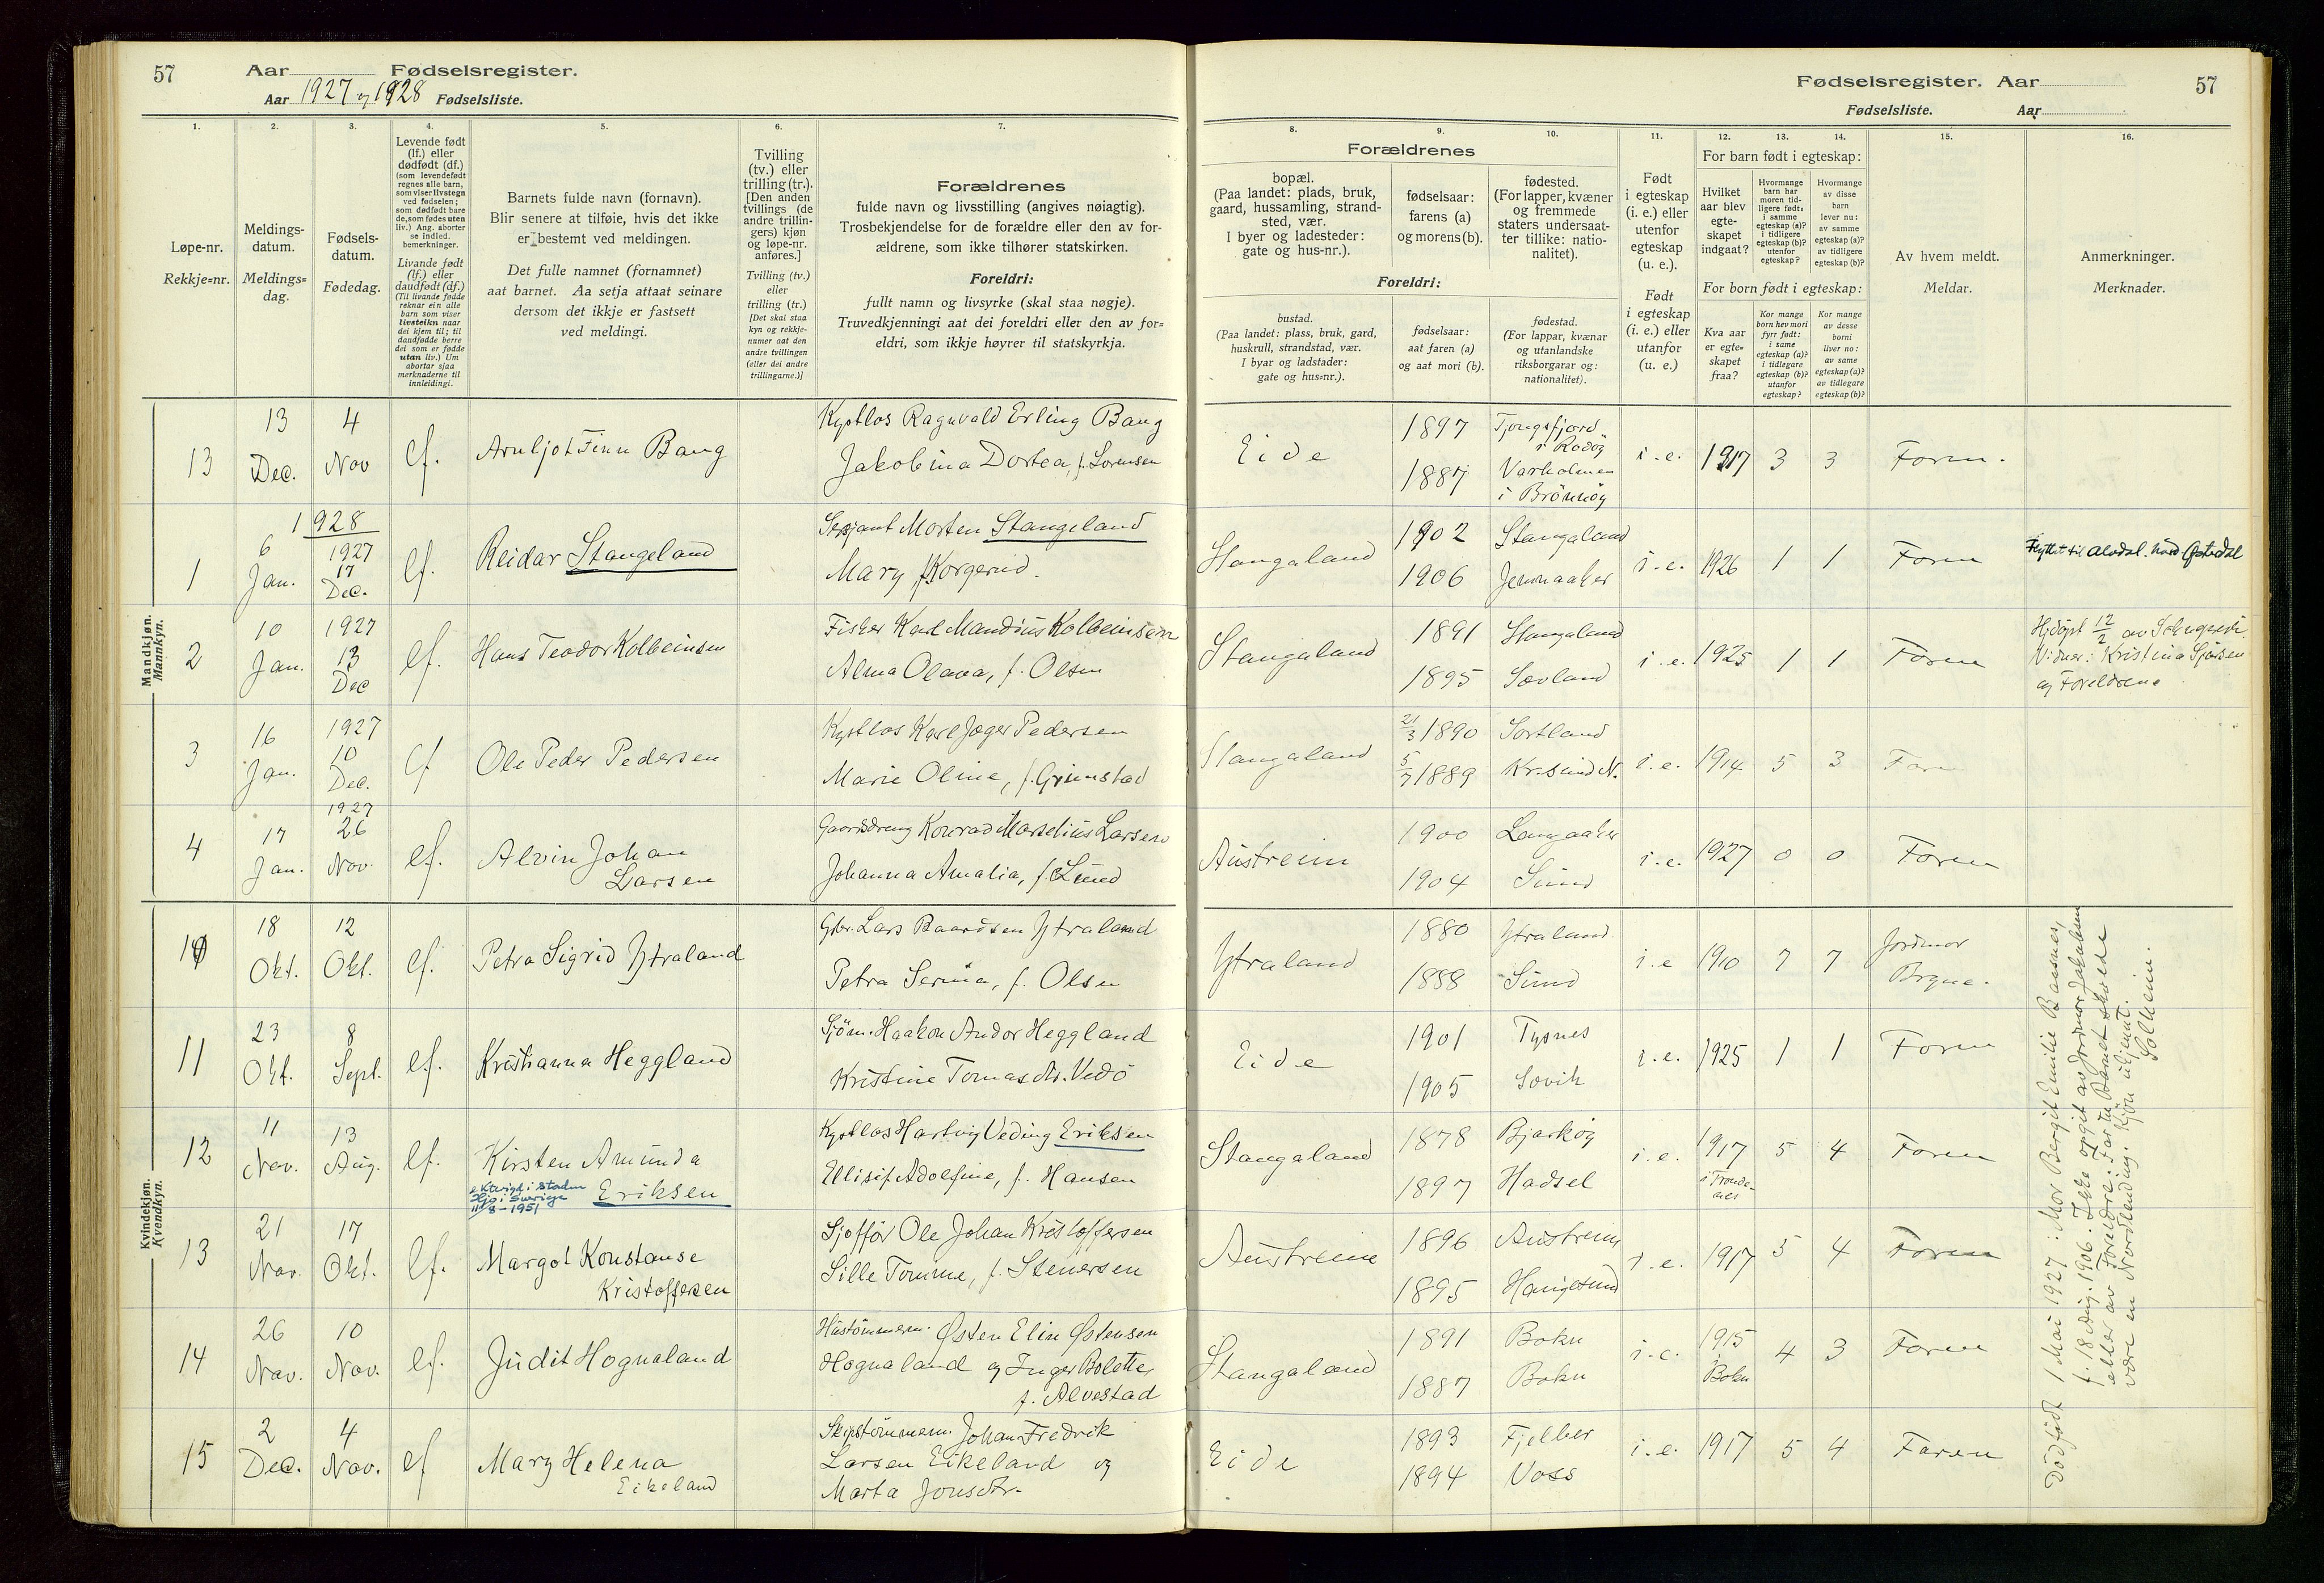 57 Aar Fødselsregister.
Aar 1927 og 1928 Fødselsliste.
Fødselsregister. Aar 57
Fødselsliste. Aar
1. 2. 3. 4. 5. 6. 7.
Løpe-nr.
Rekkje=nr.
Meldings-
datum.
Meldings=
dag.
Fødsels-
datum.
Fødedag.
Levende født
(lf.) eller
dødfødt (df.)
(som levendefødt
regnes alle barn,
som viser livstegn
ved fødselen;
som dødfødt bare
de, som fødes uten
liv.) Ang. aborter
se indled.
bemerkninger.
Livande født
(lf.) eller
daudfødt (df.)
(Til livande fødde
reknar ein alle
barn som viser
livsteikn naar
dei kjem til; til
daudfødde berre
dei som er fødde
utan liv.) Um
abortar sjaa
merknaderne til
innleidingi.
Barnets fulde navn (fornavn).
Blir senere at tilføie, hvis det ikke
er bestemt ved meldingen.
Det fulle namnet (fornamnet)
aat barnet. Aa setja attaat seinare
dersom det ikkje er fastsett
ved meldingi.
Tvilling
(tv.) eller
trilling (tr.).
[Den anden
tvillings (de
andre trillin-
gers) kjøn
og løpe-nr.
anføres.]
Tvilling (tv.)
eller
trilling (tr.)
[Det skal staa
kyn og rekkje-
numer aat den
andre tvillingen
(eller dei andre
trillingarne.)]
Forældrenes
fulde navn og livsstilling (angives nøiagtig).
Trosbekjendelse for de forældre eller den av for-
ældrene, som ikke tilhører statskirken.
Foreldri:
fullt namn og livsyrke (skal staa nøgje).
Truvedkjenningi aat dei foreldri eller den av for=
eldri, som ikkje høyrer til statskyrkja.
8. 9. 10. 11. 12. 13. 14. 15. 16.
Forældrenes
bopæl.
(Paa landet: plads, bruk,
gaard, hussamling, strand-
sted, vær.
I byer og ladesteder:
gate og hus-nr.).
fødselsaar:
farens (a)
og morens (b).
fødested.
(For lapper, kvæner
og fremmede
staters undersaat-
ter tillike: natio-
nalitet).
Foreldri:
bustad.
(Paa landet: plass, bruk, gard,
huskrull, strandstad, vær.
I byar og ladstader:
gate og hus=nr.).
fødselsaar:
aat faren (a)
og aat mori (b).
fødestad.
(For lappar, kvænar
og utanlandske
riksborgarar og:
nationalitet).
Født
i egteskap
(i. e.) eller
utenfor
egteskap
(u. e.).
Født
i egteskap
(i. e.) eller
utanfor
(u. e.)
For barn født i egteskap:
Hvilket
aar blev
egte-
skapet
indgaat?
Hvormange
barn har
moren tid-
ligere født:
i samme
egteskap (a)?
i tidligere
egteskap (b)?
utenfor
egteskap?
Hvormange
av disse
barn
lever nu:
av samme
egteskap (a)?
av tidligere
egteskap (b)?
For born født i egteskap:
Kva aar
er egte=
skapet
fraa?
Kor mange
born hev mori
fyrr født:
i same
egteskap (a)?
i tidlegare
egteskap (b)?
utanfor
egteskap?
Kor mange
av desse
borni
liver no:
av same
egteskap (a)?
av tidlegare
egteskap (b)?
Av hvem meldt.
Meldar.
Anmerkninger.
Merknader.
Mandkjøn.
Mannkyn.
13 13 Dec. 4 Nov lf. Arnljot Finn Bang
Kystlos Ragnvald Erling Bang
Jakobina Dortea, f. Sorensen
Eide 1897 Tjongsfjord i Rodøy
1887 Varholmen i Brönnöy
i.e. 1917 3 3 Faren.
1928
1 6 Jan. 1927 17 Dec. lf. Reidar Stangeland
Sersjant Morten Stangeland
Mary f. Korgerud.
Stangaland 1902 Stangaland
1906 Jennaaker
i.e. 1926 1 1 Faren
2 10 Jan. 1927 13 Dec lf. Hans Teodor Kolbeinsen
Fisker Karl Mandius Kolbeinsen
Alma Olava, f. Olsen
Stangaland 1891 Stangaland
1895 Sævland
i.e. 1925 1 1 Faren
Vidner: Kristina Sjursen
og Foreldrene
3 16 Jan. 1927 10 Dec. lf Ole Peder Pedersen
Kystlos Karl Jæger Pedersen
Marie Oline, f. Grimstad
Stangaland 21/3 1890 Sortland
5/7 1889 Kr.sund N.
i.e. 1914 5 3 Faren
4 17 Jan. 1927 26 Nov. lf. Alvin Johan
Larsen
Gaardsdreng Konrad Marselius Larsen
Johanna Amalia, f. Lund
Austreim 1900 Langaaker
1904 Sund
i.e. 1927 0 0 Faren
Kvindekjøn.
Kvendkyn.
10 18 Okt. 12 Okt. lf. Petra Sigrid Ytraland
Gbr. Lars Baardsen Ytraland
Petra Serina, f. Olsen
Ytraland 1880 Ytraland
1888 Sund
i.e 1910 7 7 Jordmor
Brgna.
11 23 Okt. 8 Sept. lf. Kristianna Heggland
Sjöm. Haakon Andor Heggland
Kristine Tomasdtr. Vedö
Eide 1901 Tysnes
1905 Sævik
i.e. 1925 1 1 Faren
12 11 Nov. 13 Aug. lf. Kirsten Amunda
Eriksen
ektevigd i staden
Hjo i Sverige
11/8-1951
Kystlos Hartvig Veding Eriksen
Ellisif Adolfine, f. Hansen
Stangaland 1878 Bjarköy
1897 Hadsel
i.e. 1917 i Tronde-
nes 5 4 Faren
13 21 Nov. 17 Okt. lf. Margot Konstanse
Kristoffersen
Sjoffør Ole Johan Kristoffersen
Sille Tomine, f. Stenersen
Austreim 1896 Austreim
1895 Haugesund
i.e. 1917 5 4 Faren
14 26 Nov. 10 Nov. lf. Judit Hognaland
Hustömmerm. Østen Elin Østensen
Hognaland og Inger Bolette,
f. Alvestad
Stangaland 1891 Bokn
1887 Bokn
i.e. 1915 i Bokn 4 3 Faren
15 2 Dec. 4 Nov. lf Mary Helena
Eikeland
Skipstömmerm. Johan Fredrik
Larsen Eikeland og
Marta Jonsdtr.
Eide 1893 Fjelber
1894 Voss
i.e. 1917 5 4 Faren
Dödfödt 1 Mai 1927: Mor Bergit Emilie Baasnes,
f. 18 aug. 1906. Ikke opgit av Jordmor Jakobsen
eller av Foreldre. Far til Barnet skulde
være en Nordlending. Kjön ukjent.
Solheim.